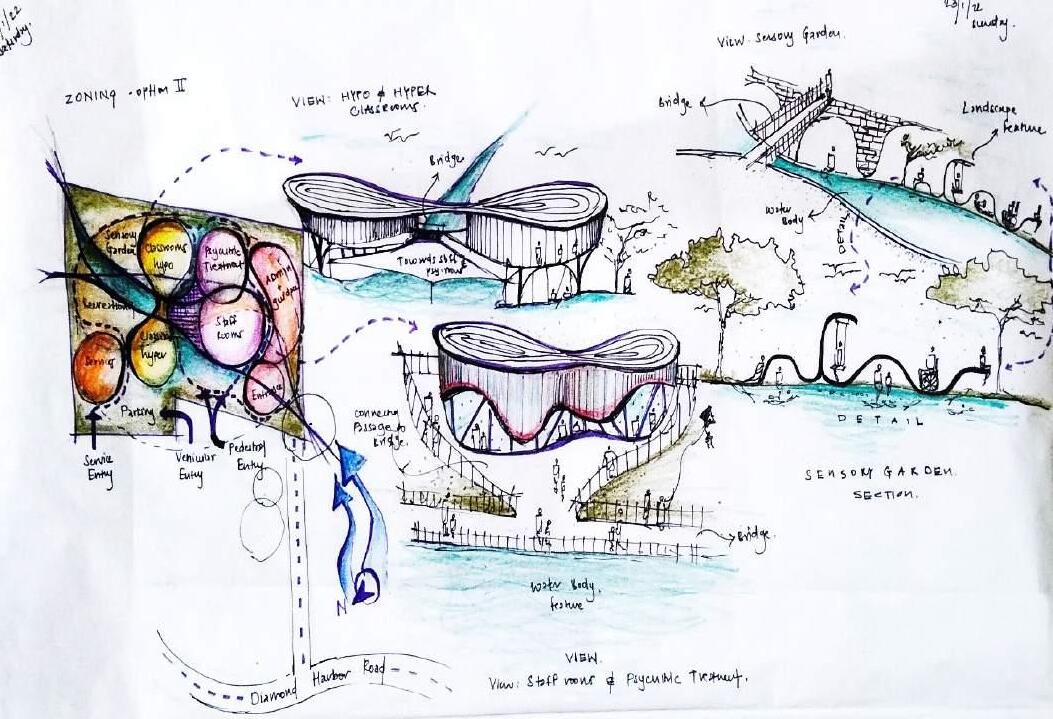 1/22
Saturday.
23/1/22
Sunday.
ZONING - option II
VIEW: HYPO & HYPER
CLASSROOMS.
View: Sensory Garden.
Bridge
Bridge
Landscape
feature
Water
Body
DETAIL
Towards staff &
Sensory
Garden
Classrooms
hypo
Psychiatric
Treatment
Admin
Recreational
Staff
rooms
Service
Classroom
hyper
Entrance
Parking
Service
Entry
Vehicular
Entry
Pedestrial
Entry
Connecting
Passage to
Bridge.
DETAIL
SENSORY GARDEN.
SECTION.
Bridge.
Water Body.
feature
N
Diamond Harbor Road
VIEW.
View: Staff rooms & Psychiatric Treatment.